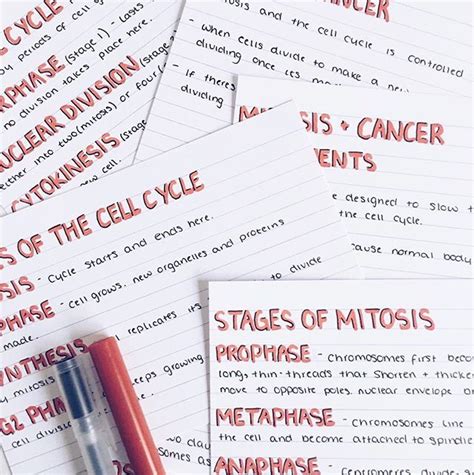 CELL CYCLE
by periods of cell
PHASE (stage 1) - lasts
no division takes place here.
NUCLEAR DIVISION (stage
either into two (mitosis) or four
CYTOKINESIS (stage
new cell.
CANCER
mitosis and the cell cycle is controlled
- when cells divide to make a new
dividing once its
- if there's
dividing
+ CANCER
designed to slow
the cell cycle.
cause normal body
S OF THE CELL CYCLE
SIS - cycle starts and ends here.
PHASE - cell grows, new organelles and proteins
made.
to divide
YNTHESIS
replicates its
by mitosis
keeps growing
G2 PHA
cell division
STAGES OF MITOSIS
PROPHASE - chromosomes first beco
long, thin threads that shorten + thicke
move to opposite poles. nuclear envelope
METAPHASE - chromosomes line
the cell and become attached to spindle
ANAPHASE - centromeres divide